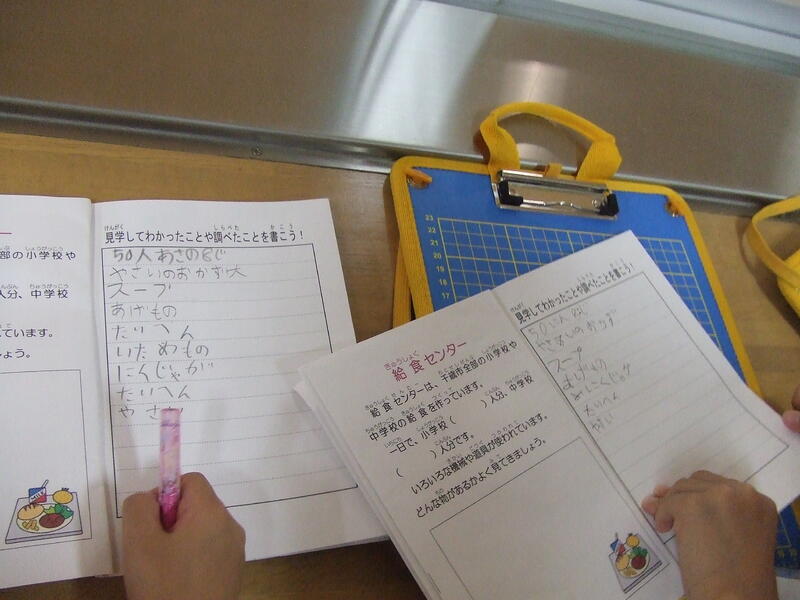 部の小学校や
人分、中学校
ています。
しょう。
見学してわかったことや調べたことを書こう！
50人
やさいのおかず大
スープ
あげもの
たいへん
いためもの
にんじゃが
たいへん
やさい
給食センター
給食センターは、千歳市全部の小学校や
中学校の給食を作っています。
一日で、小学校（　　）人分、中学校
（　　）人分です。
いろいろな機械や道具が使われています。
どんな物があるかよく見てきましょう。
見学してわかったことや調べたことを書こう！
のおかず
スープ
たいへん
23
22
21
20
19
18
17